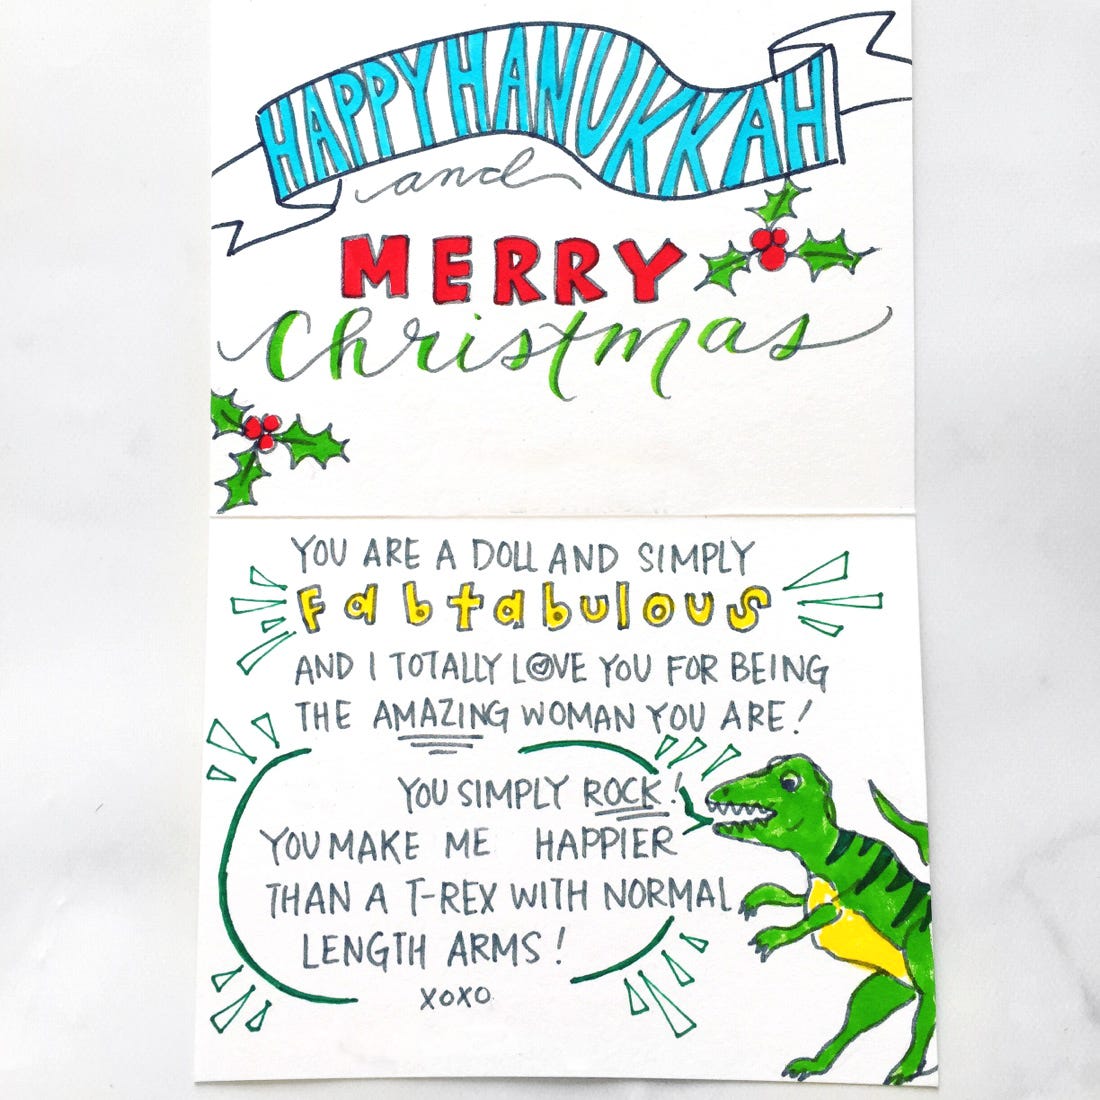 HAPPY HANUKKAH
and
MERRY
Christmas
YOU ARE A DOLL AND SIMPLY
fabtabulous
AND I TOTALLY LOVE YOU FOR BEING
THE AMAZING WOMAN YOU ARE!
YOU SIMPLY ROCK!
YOU MAKE ME HAPPIER
THAN A T-REX WITH NORMAL
LENGTH ARMS!
XOXO